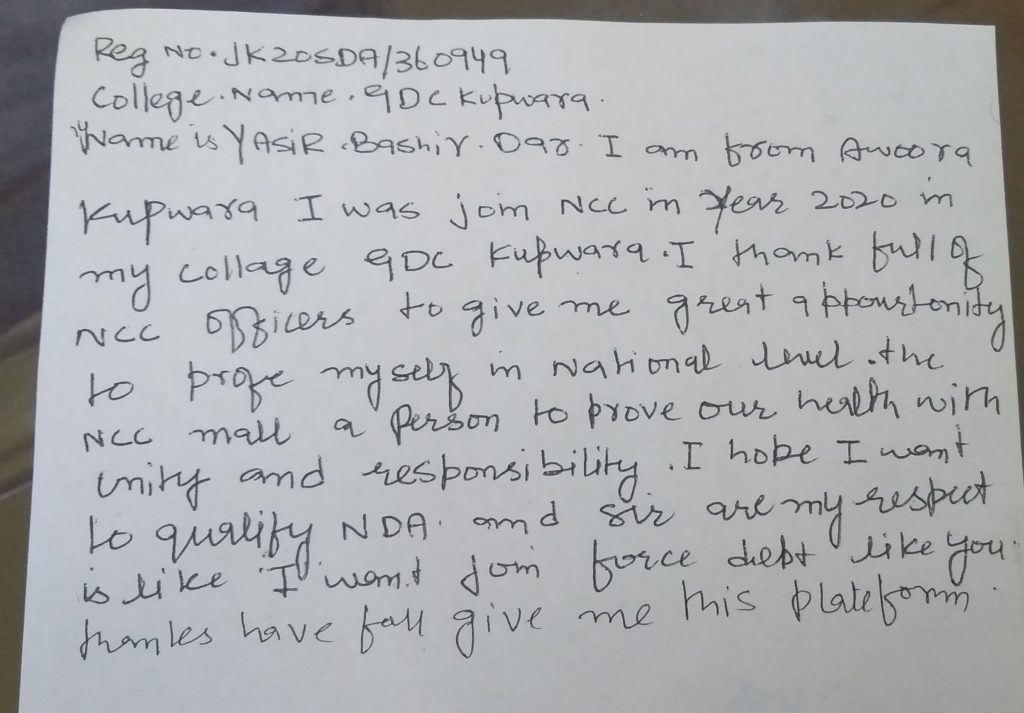 Reg No. JK20SDA/360949
College. Name. GDC Kupwara.
My Name is YASiR. Bashir. Dar. I am from Awoora
Kupwara I was join NCC in Year 2020 in
my collage GDC Kupwara. I thank full of
NCC officers to give me great appourtonity
to profe myself in National level. the
NCC mall a Person to prove our health with
unity and responsibility. I hope I want
to qualify NDA. and sir are my respect
is like I want join force debt like you.
thankes have fall give me this plateform.